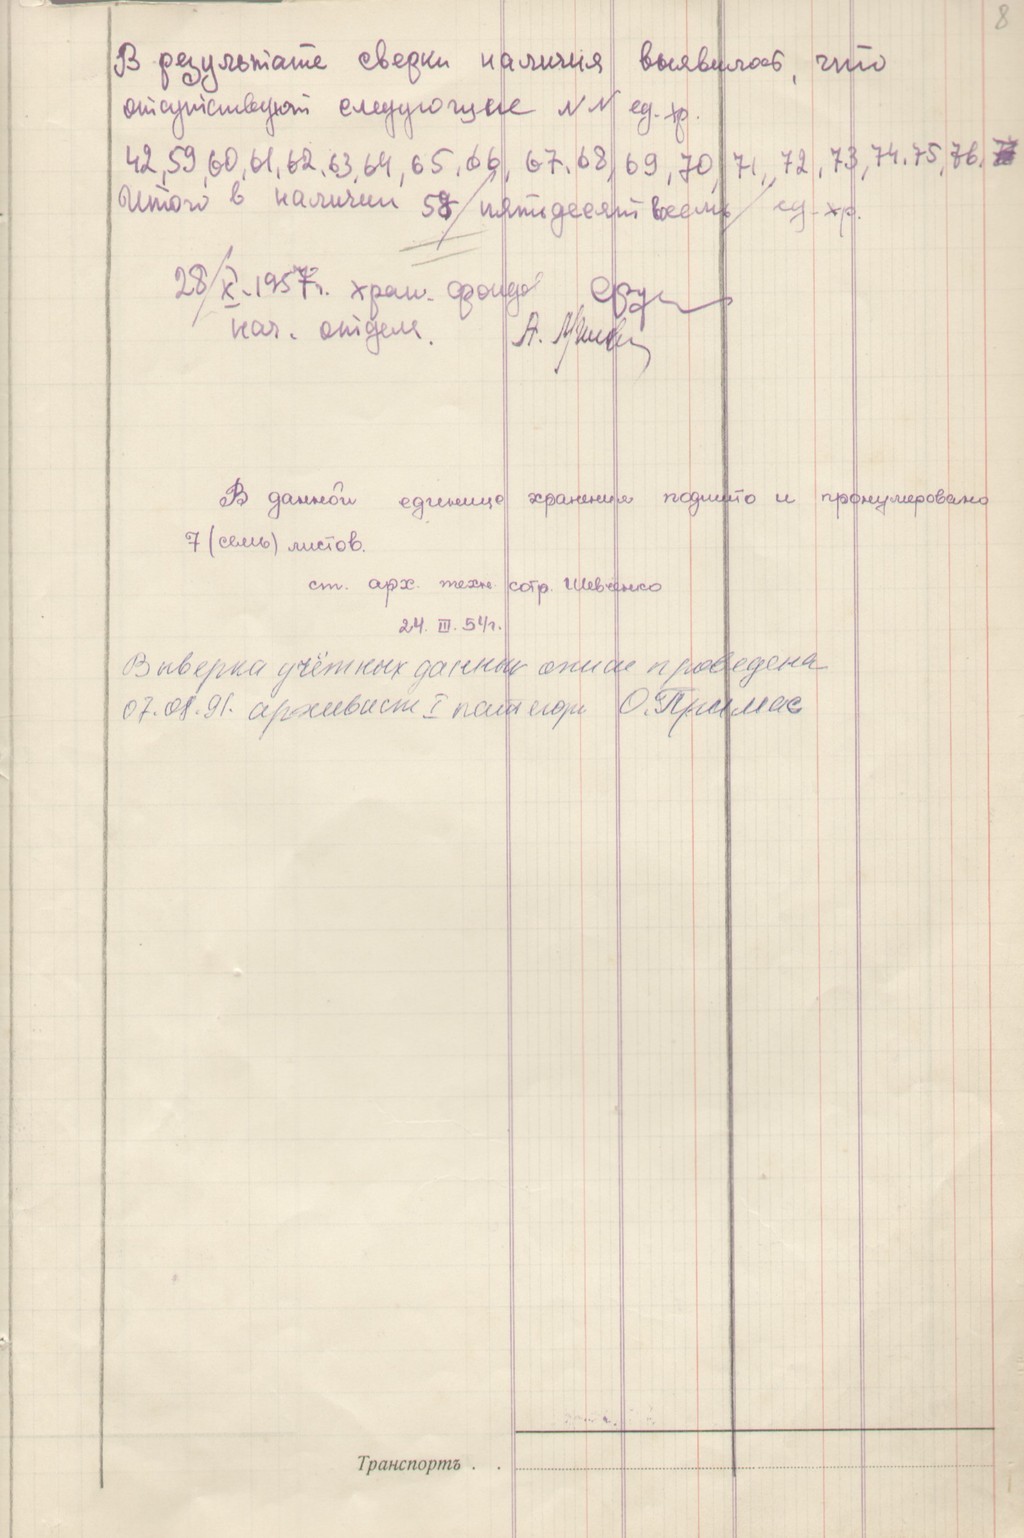 8
В результате сверки наличия выявилось, что
отсутствуют следующие NN ед. хр.
42, 59, 60, 61, 62, 63, 64, 65, 66, 67, 68, 69, 70, 71, 72, 73, 74, 75, 76,
Итого в наличии 58 /пятьдесят восемь/ ед. хр.
28/X.1957г. хран. фонда
нач. отдела. А.
В данной единице хранения подшито и пронумеровано
7 (семь) листов.
ст. арх. техн. сотр. Шевченко
24. III. 54г.
Выверка учётных данных описи проведена
07.01.91. архивист I категор О. Примас
Транспортъ . .